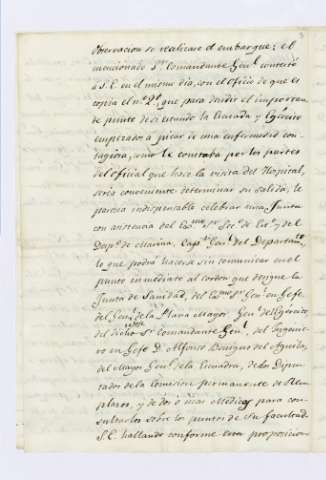 observacion se realizase el embarque; el
mencionado Sr. Comandante Genl. contestó
á S.E. en el mismo dia, con el Oficio de que es
copia el nº 2º, que para decidir el importan-
te punto de si estando la Escuadra y Egército
empezados á picar de una enfermedad con-
tagiosa, como le constaba por los partes
del oficial que hace la visita del Hospital,
sería conveniente determinar su salida, le
parecia indispensable celebrar una Junta
con asistencia del Exmo. Sr. Sec. de Est. y del
Desp. de Marina, Capn. Genl. del Departamto.
lo que podrá hacerse sin comunicar en el
punto inmediato al cordon que designe la
Junta de Sanidad, del Exmo. Sr. Genl. en Gefe
del Genl. de la Plana Mayor Genl. del Egército
del dicho Sr. Comandante Genl., del Ingenie-
ro en Gefe D. Alfonso Benigno del Aguila,
del Mayor Genl. de la Escuadra, de dos Dipu-
tados de la Comision permanente de Reem-
plazos, y de dos ó mas Medicos para con-
sultarlos sobre los puntos de su facultad.
S.E. hallando conforme esta proposicion